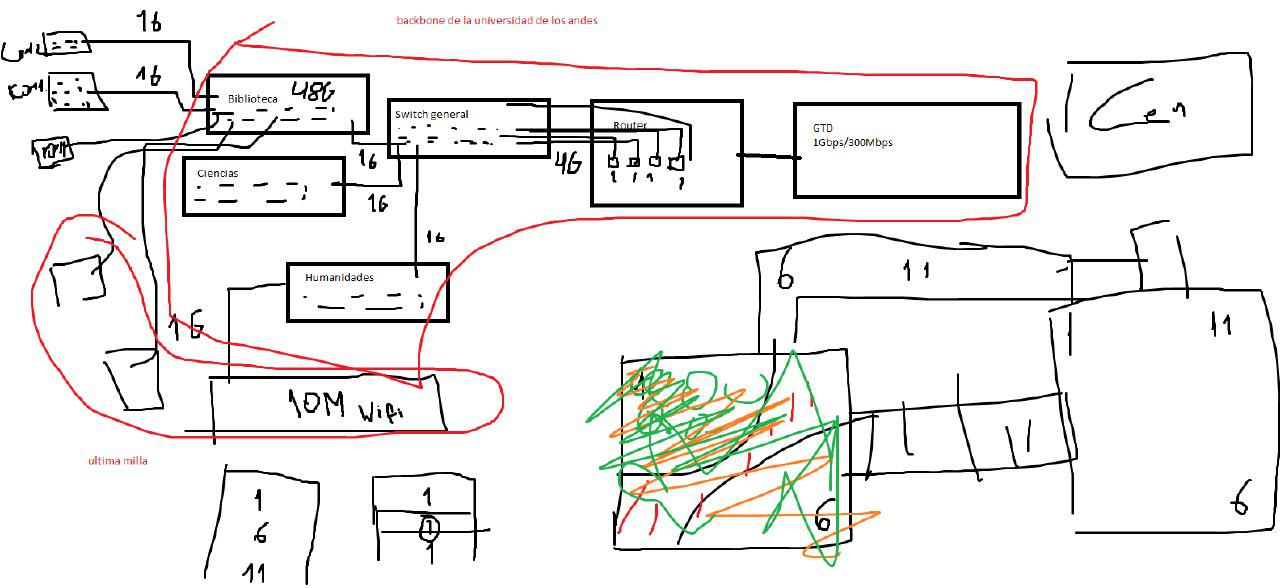 backbone de la universidad de los andes
1G
1G
Biblioteca 48G
Switch general
Router
GTD
1Gbps/300Mbps
Cen
1G
4G
Ciencias
1G
1G
Humanidades
1G
10M Wifi
ultima milla
6
11
11
11
6
6
1
6
11
1
1
1